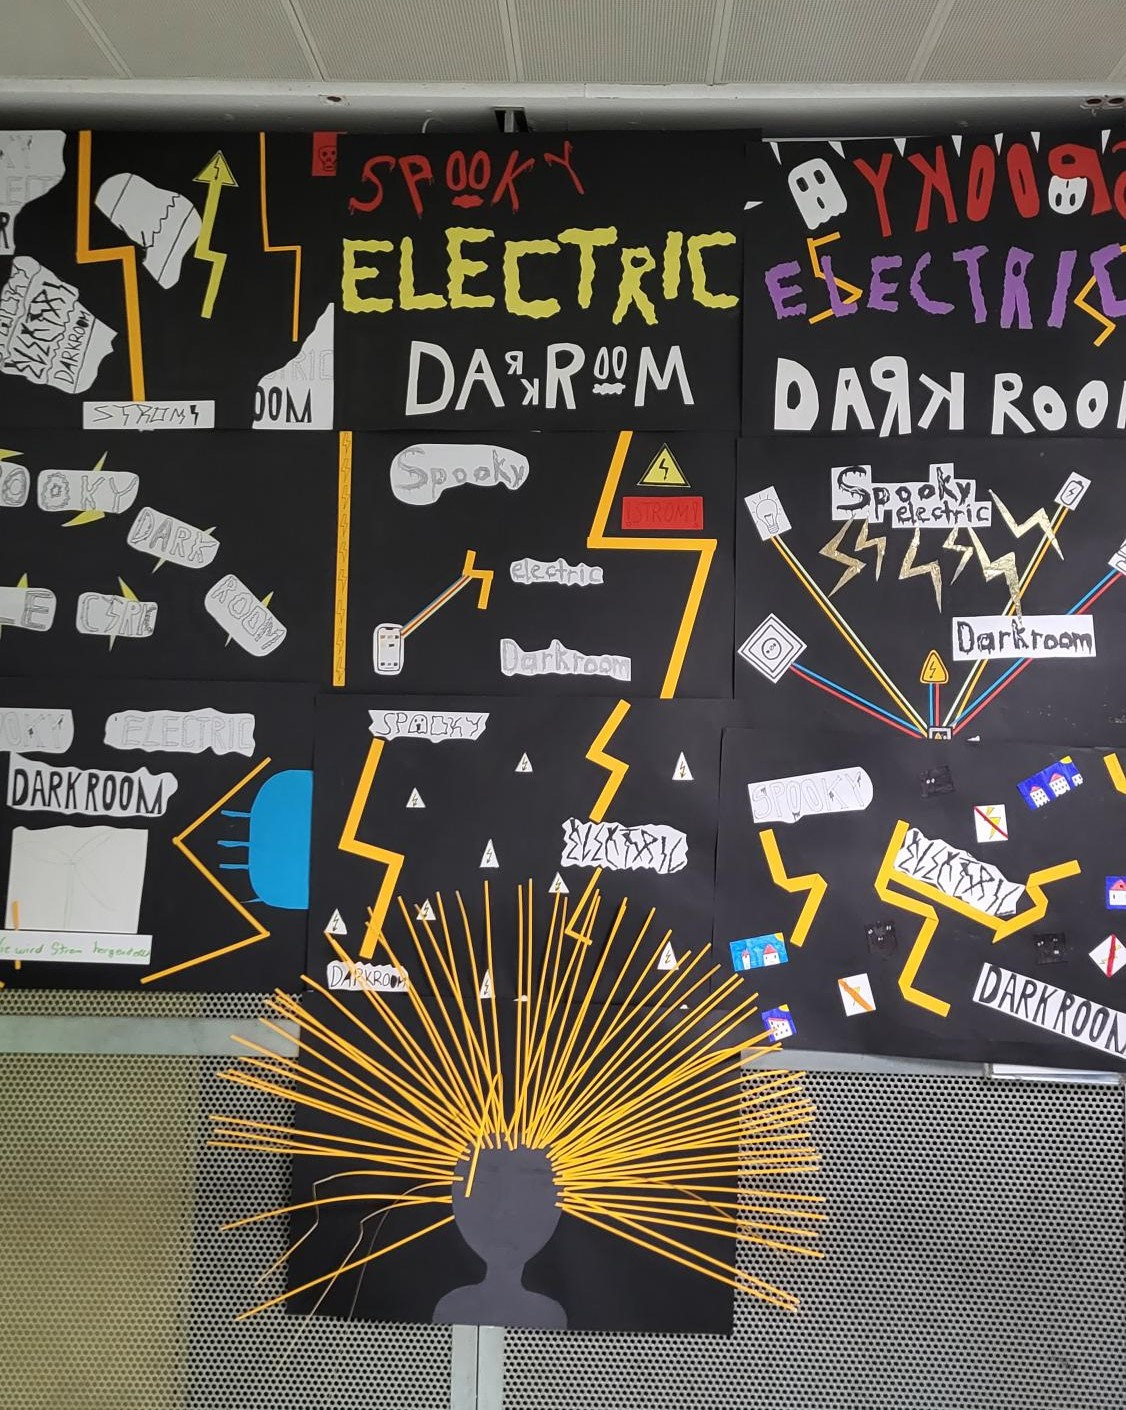 SPOOKY
ELECTRIC
DARKROOM
SPOOKY
ELECTRIC
DARK ROO
ELEKTRI
DARKROOM
STROM
TRIC
OOM
OOKY
DARK
E
CTRIC
ROOM
Spooky
STROM!
electric
Darkroom
Spooky
electric
Darkroom
OOKY
ELECTRIC
DARKROOM
wird Strom hergestellt
SPOOKY
ELEKTRIC
DARKROOM
SPOOKY
ELEKTRIC
DARKROOM